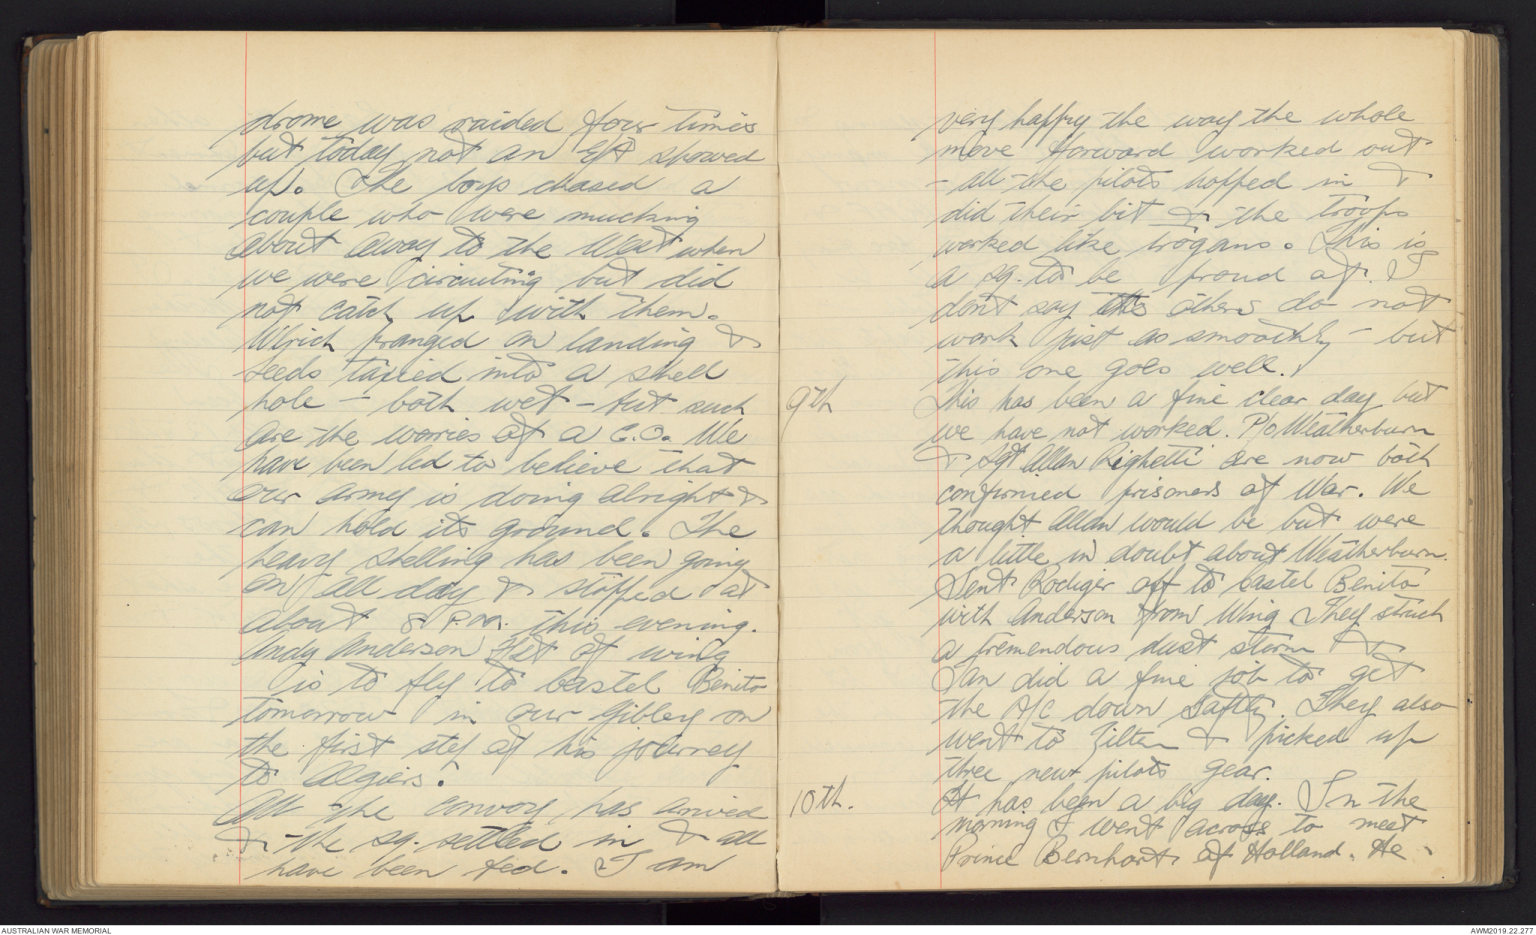 drome was raided four times
but today not an E/A showed
up. The boys chased a
couple who were mucking
about away to the West when
we were circuiting but did
not catch up with them.
Ulrich pranged on landing &
Leeds taxied into a shell
hole - both wet - but such
are the worries of a C.O. We
have been led to believe that
our army is doing alright &
can hold its ground. The
heavy shelling has been going
on all day & stopped at
about 8 P.M. this evening.
Andy Anderson of wing
is to fly to Castel Benito
tomorrow in our Gibley on
the first step of his journey
to Algiers.
All the convoy has arrived
& the sq. settled in & all
have been fed. I am
very happy the way the whole
move forward worked out
- all the pilots hopped in &
did their bit & the troops
worked like trogans. This is
a sq. to be proud of. I
don't say the others do not
work just as smoothly - but
this one goes well.
9th This has been a fine clear day but
we have not worked. P/O Weatherburn
& Sgt Allan Righetti are now both
confirmed prisoners of War. We
thought Allan would be but were
a little in doubt about Weatherburn.
Sent Rodiger off to Castel Benito
with Anderson from Wing. They struck
a tremendous dust storm &
Ian did a fine job to get
the A/C down saftly. They also
went to Zilten & picked up
three new pilots gear.
10th. It has been a big day. In the
morning I went across to meet
Prince Bernhart of Holland. He
AUSTRALIAN WAR MEMORIAL
AWM2019.22.277